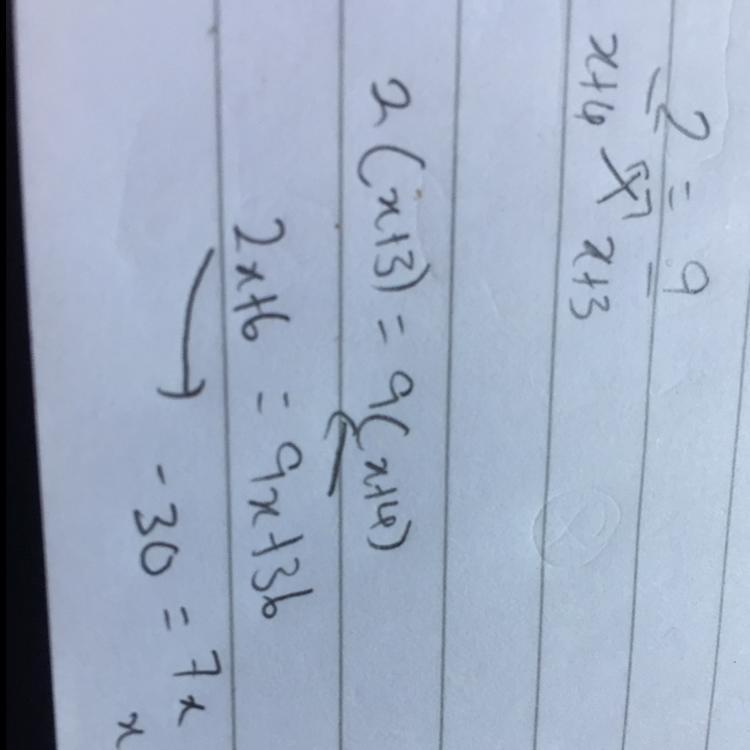 2 = 9
x+4 x+3
2(x+3) = 9(x+4)
2x+6 = 9x+36
-30 = 7x
x